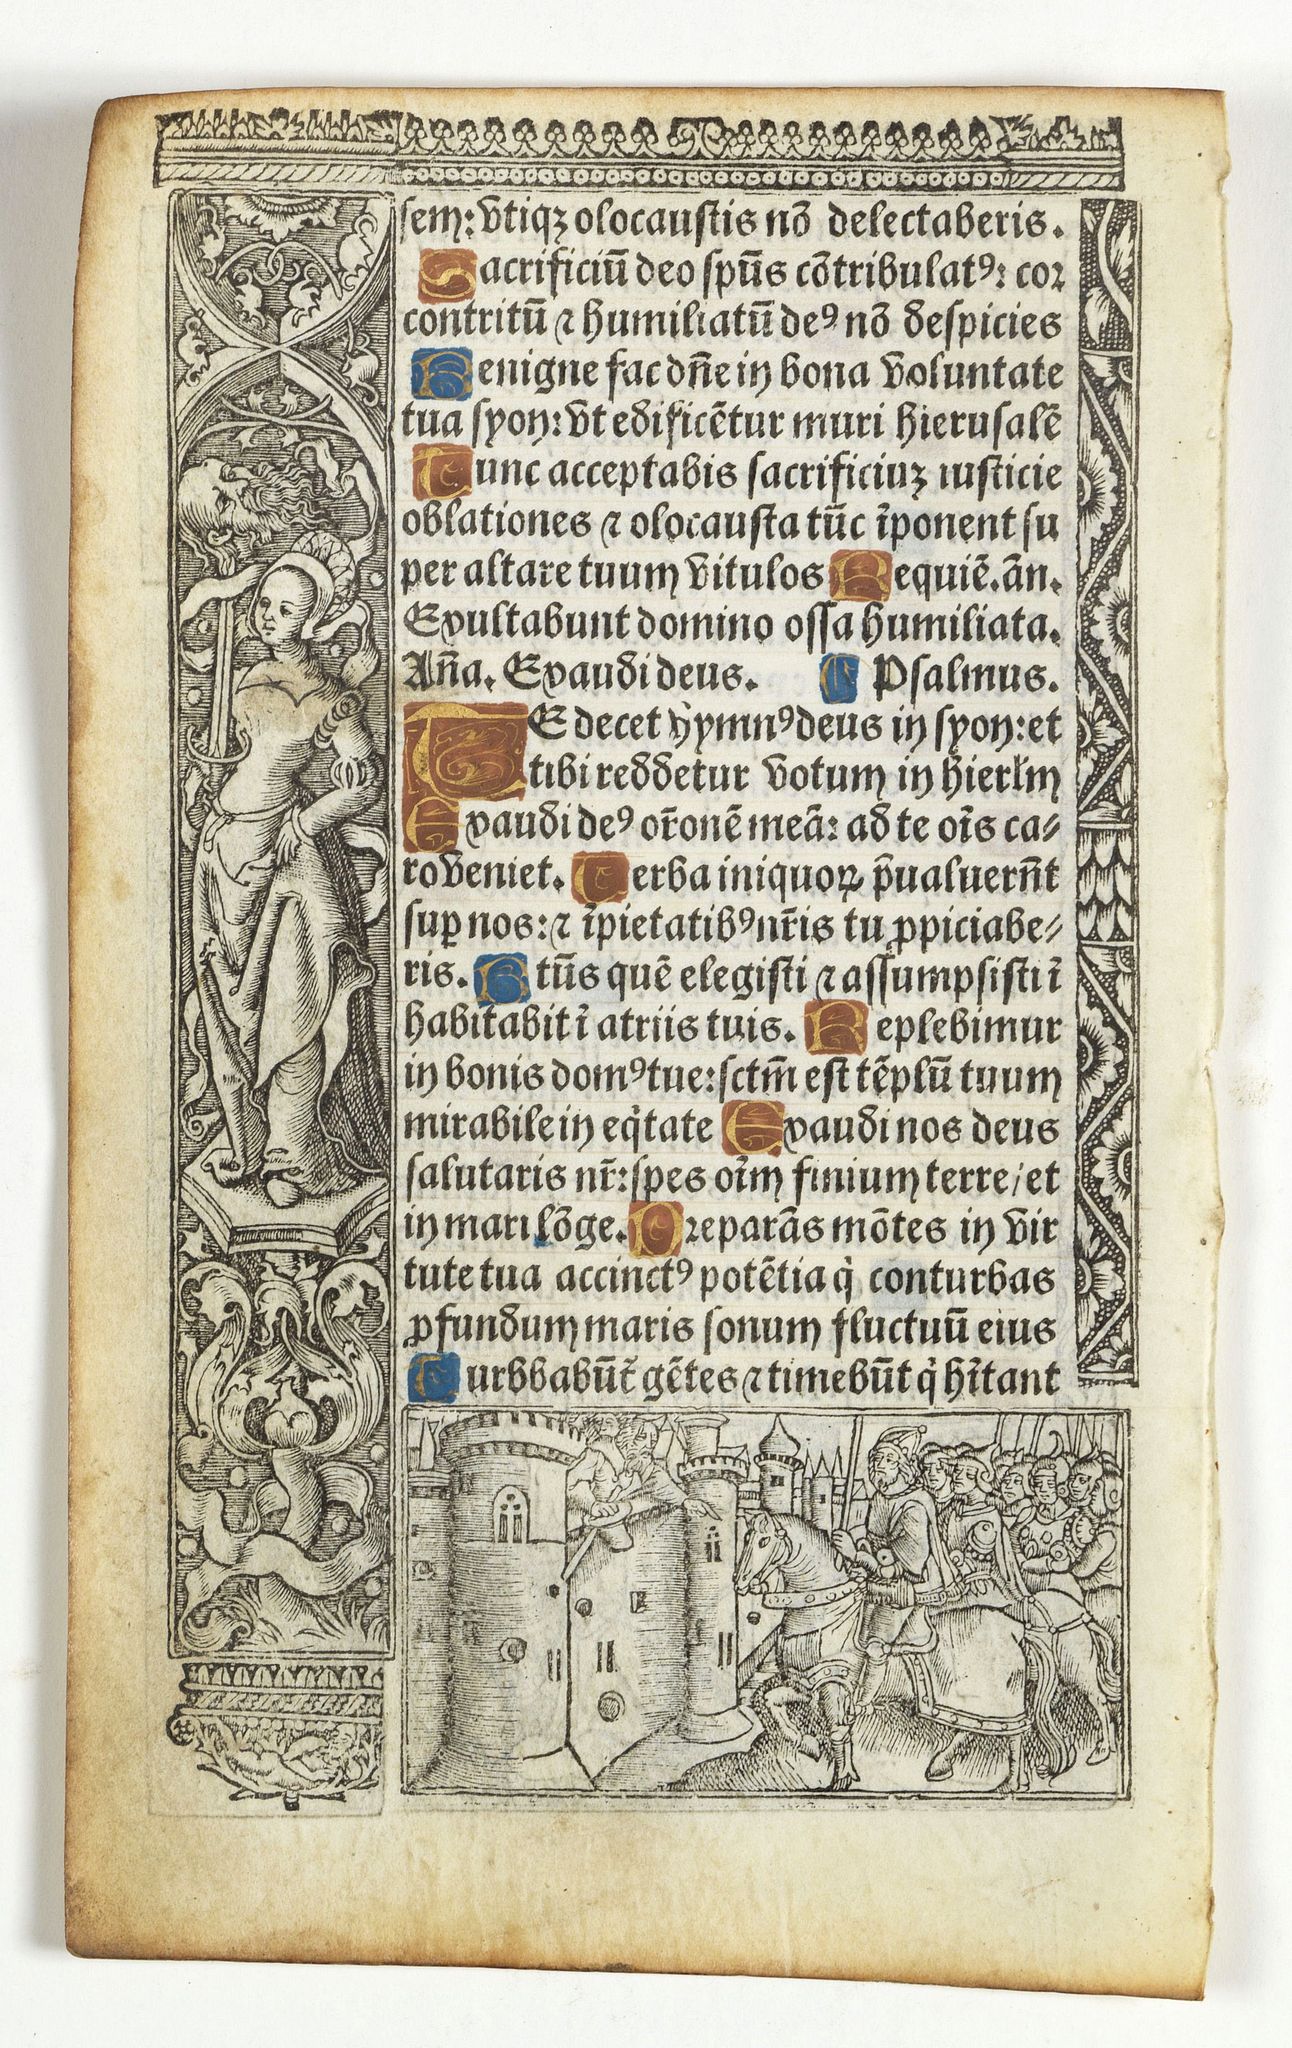 sem: vtiqꝫ olocaustis nō delectaberis.
Sacrificiū deo spūs cōtribulatꝰ: cor
contritū ⁊ humiliatū deꝰ nō despicies
Benigne fac dn̄e in bona voluntate
tua syon: vt edificētur muri hierusalē
Tunc acceptabis sacrificiuꝫ iusticie
oblationes ⁊ olocausta tūc īponent su
per altare tuum vitulos Requiē. an̄.
Exultabunt domino ossa humiliata.
An̄a. Exaudi deus. ¶ Psalmus.
TE decet hymnꝰ deus in syon: et
tibi reddetur votum in hierl̄m
Exaudi deꝰ or̄onē meā: ad te oīs ca⸗
ro veniet. Verba iniquoꝝ p̄ualuerūt
suꝑ nos: ⁊ īpietatibꝰ nr̄is tu ꝓpiciabe⸗
ris. Btūs quē elegisti ⁊ assumpsisti ī
habitabit ī atriis tuis. Replebimur
in bonis domꝰ tue: sctm̄ est tēplū tuum
mirabile in eq̇tate Exaudi nos deus
salutaris nr̄: spes oīm finium terre/ et
in mari lōge. Preparās mōtes in vir
tute tua accinctꝰ potētia q̇ conturbas
ꝓfundum maris sonum fluctuū eius
Turbbabūt̄ gētes ⁊ timebūt q̇ hītant